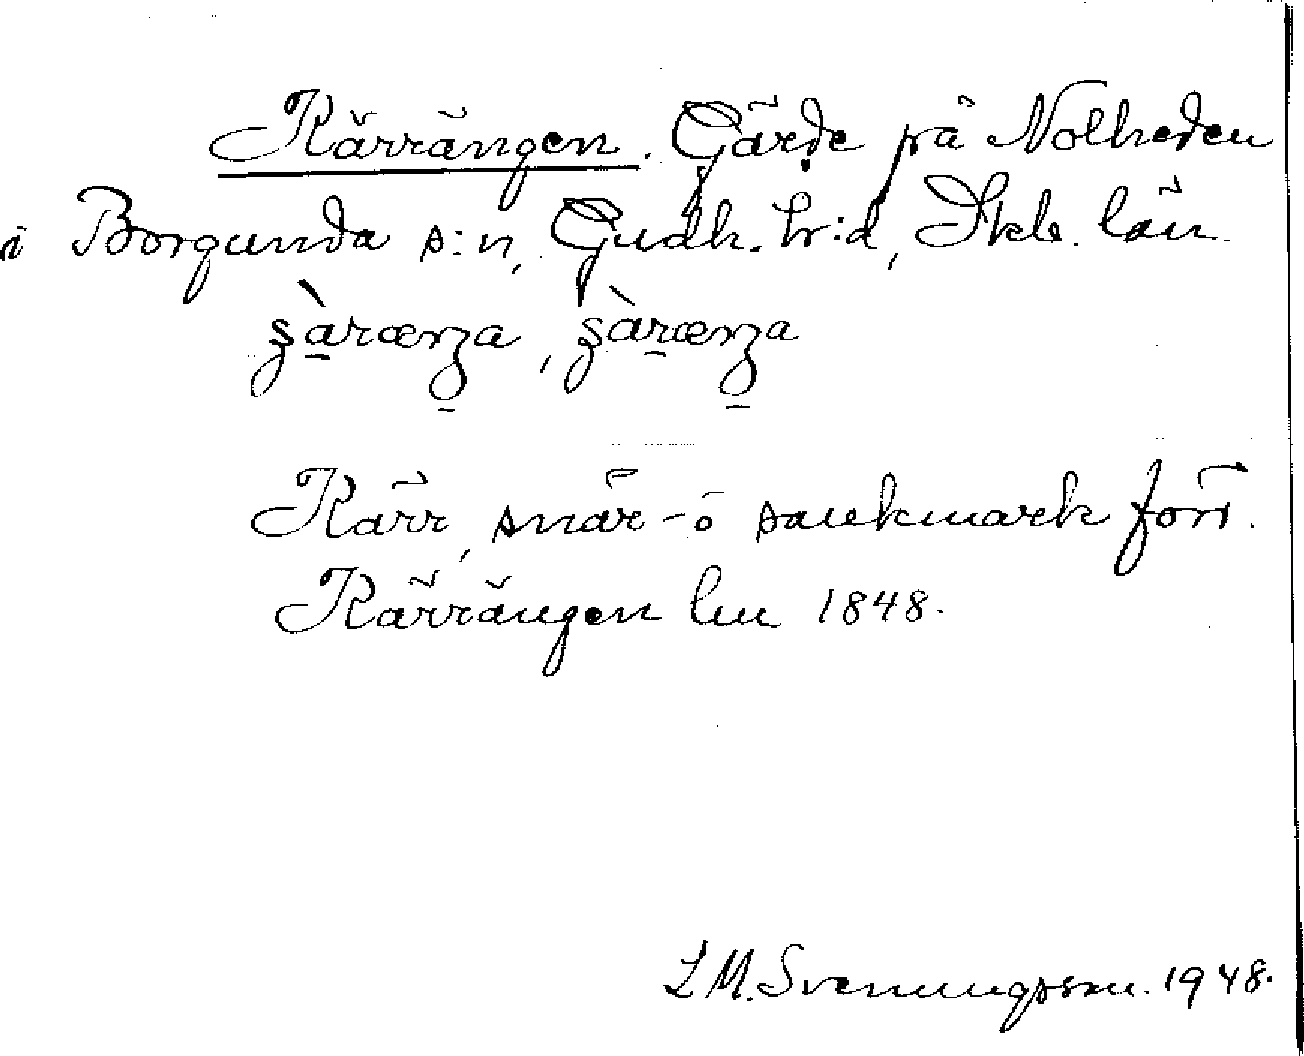 Kärrängen. Gärde på Nolheden
i Borgunda s:n, Gudh. hr:d, Skb. län.
Kärr, snår- o sankmark förr.
Kärrängen lm 1848.
L M. Svenungsson. 1948.